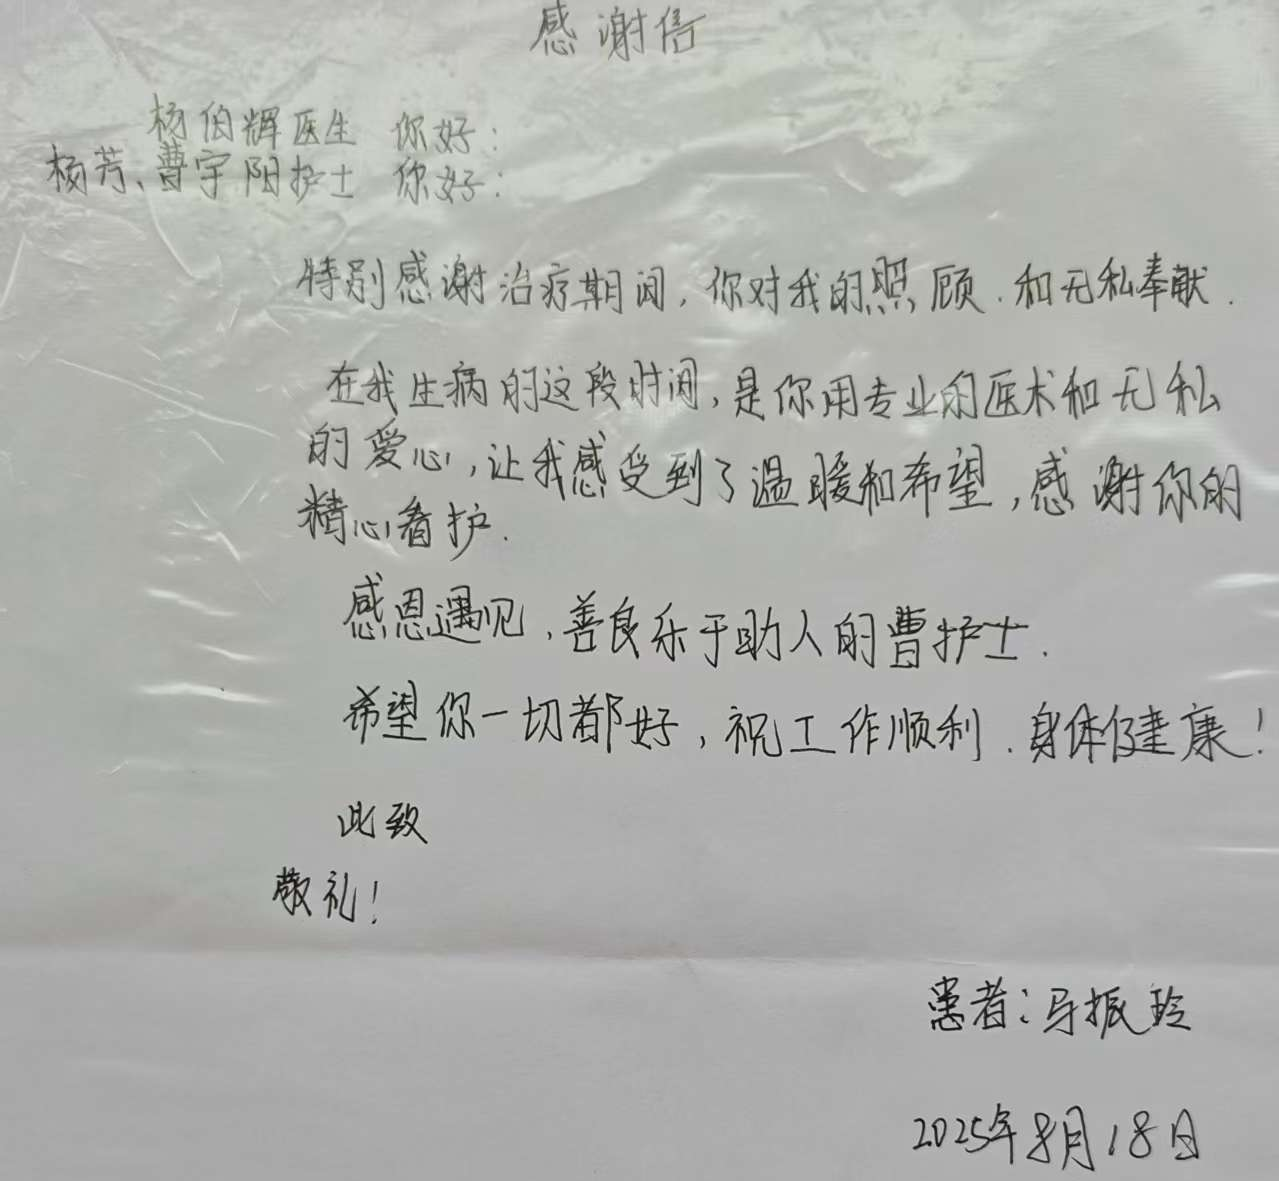 感谢信
杨伯辉医生 你好：
杨芳、曹宇阳护士 你好：
特别感谢治疗期间，你对我的照顾.和无私奉献.
在我生病的这段时间，是你用专业的医术和无私
的爱心，让我感受到了温暖和希望，感谢你的
精心看护.
感恩遇见，善良乐于助人的曹护士.
希望你一切都好，祝工作顺利.身体健康！
此致
敬礼！
患者：马振玲
2025年8月18日